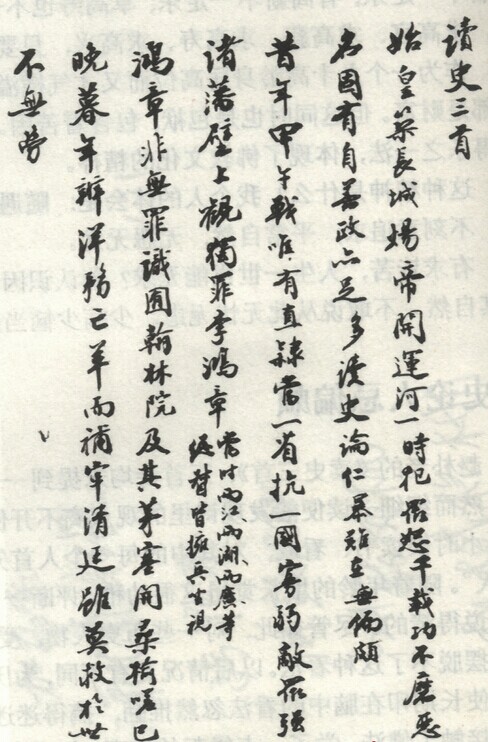 讀史首
始皇築長城煬帝開運河一時犯眾怒千載功不磨惡
名固有自善政亦足多後史論仁暴難在無偏頗
昔年甲午戰唯有直隸當一省抗國寇弱敵強
諸藩壁上觀獨罪李鴻章當時兩江兩湖兩廣等
總督皆擁兵坐視
鴻章非無罪識囿翰林院及其茅塞開桑榆已
晚暮年辦洋務亡羊而補牢清廷雖莫救於世
不無勞